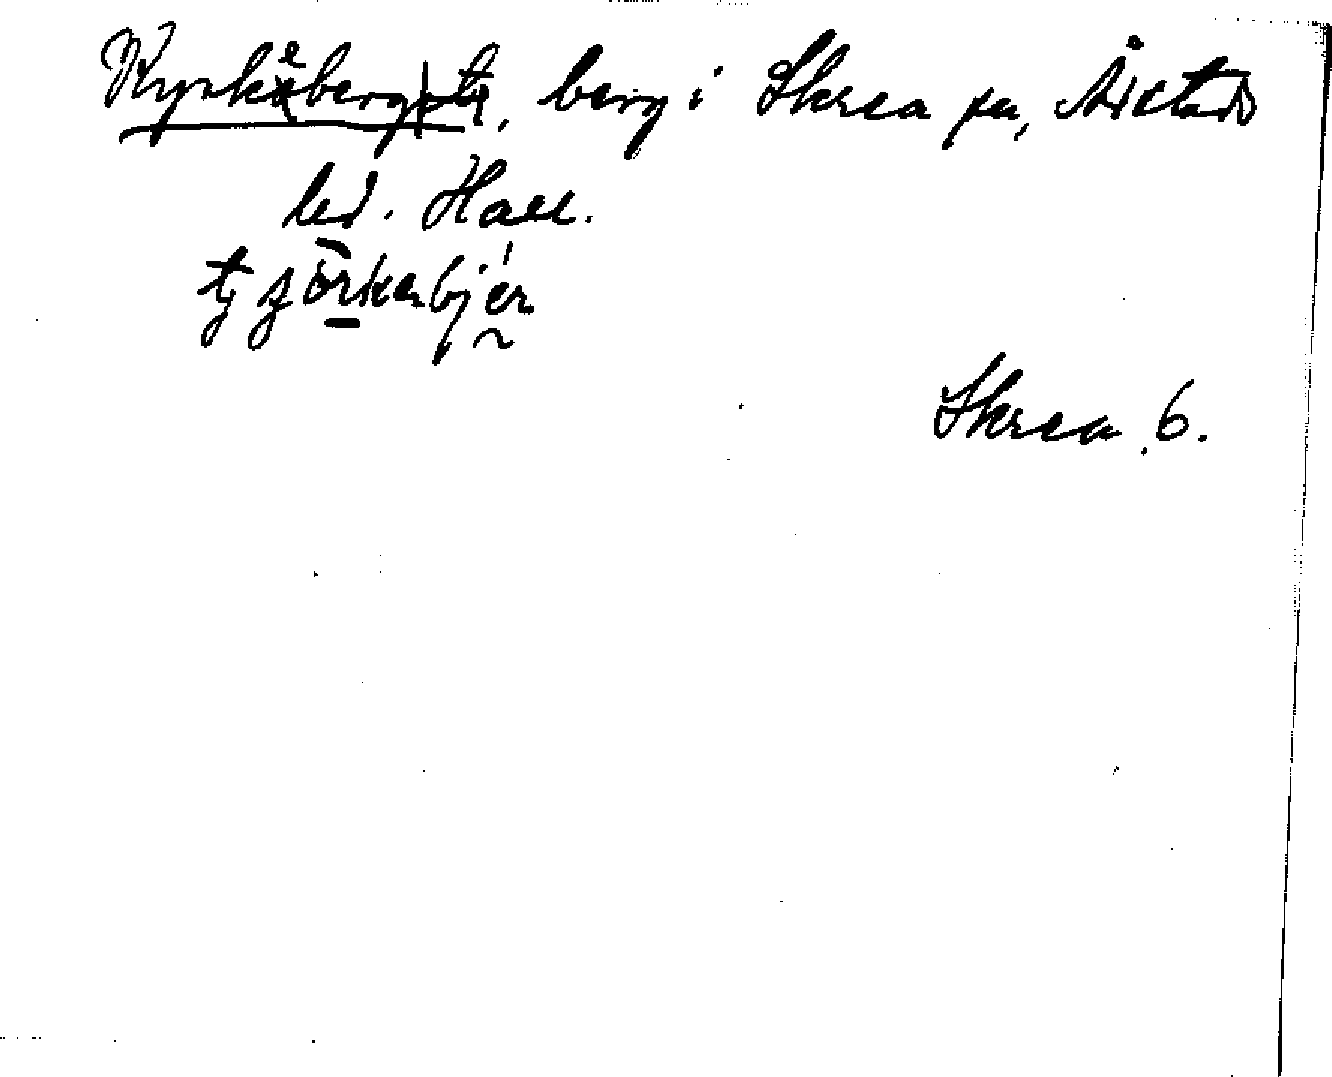 Kyrkeberg, berg i Skrea sn, Årstads
hd. Hall.
tjörkebjér
Skrea 6.